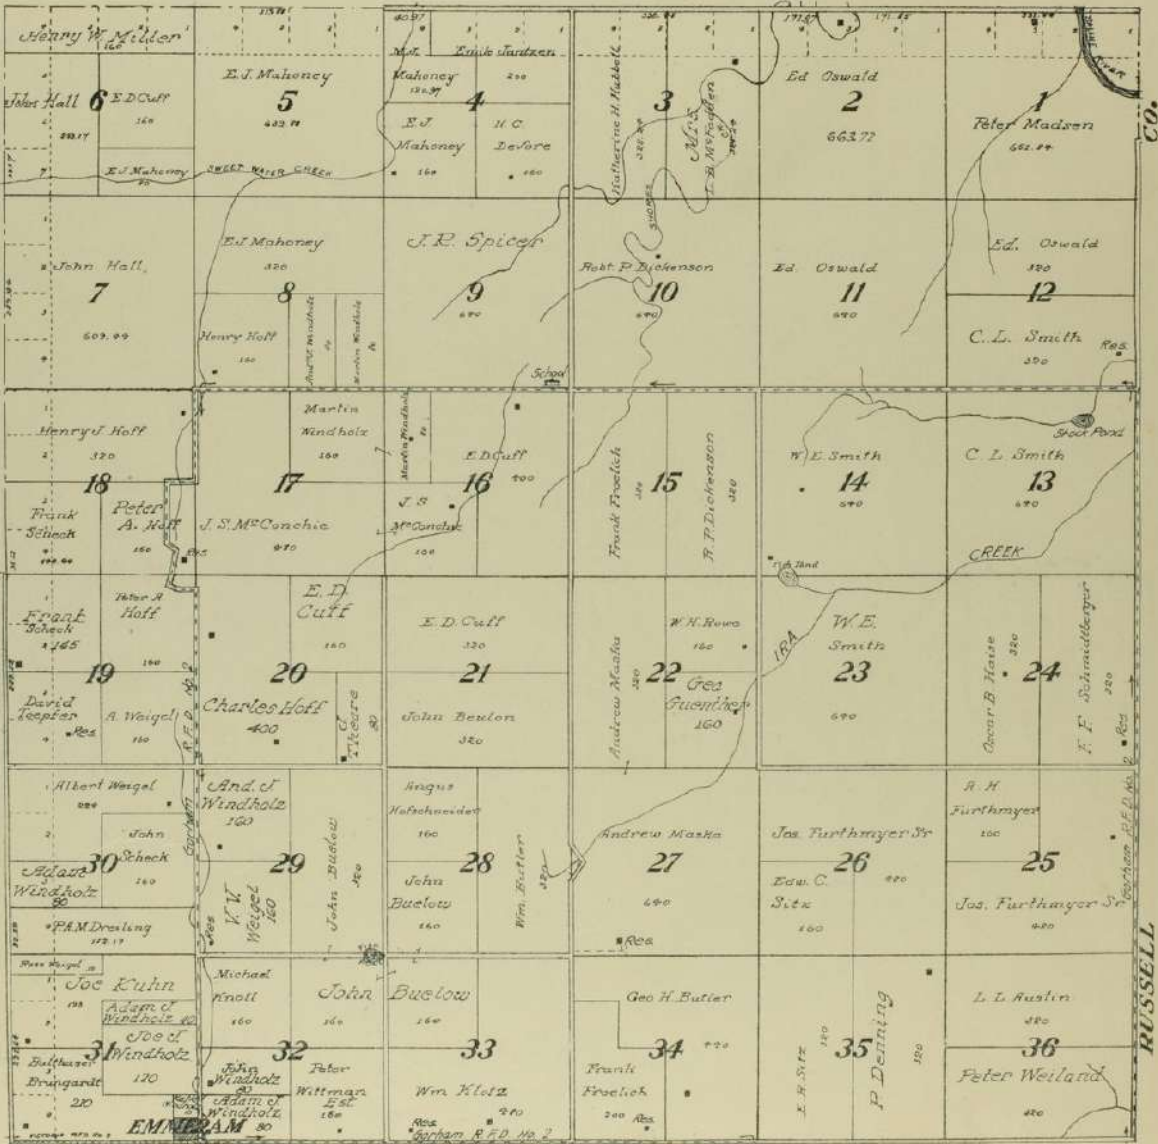 Henry W. Miller
160
John Hall
6
E.D. Cuff
160
E.J. Mahoney
80
E.J. Mahoney
5
SWEET WATER CREEK
M.J.
Mahoney
Emile Jantzen
200
4
E.J.
Mahoney
160
H.C.
DeVore
160
Katherine H. Hubbell
3
Mrs.
L.B. McFadden
Ed Oswald
2
663.72
1
Peter Madsen
RIVER
CO.
John Hall
7
609.44
E.J. Mahoney
320
8
Henry Hoff
160
Martin Windholz
80
J.R. Spicer
9
640
School
SHORES
Robt. P. Dickenson
10
640
Ed Oswald
11
640
Ed. Oswald
320
12
C.L. Smith
320
Res.
Henry J. Hoff
320
18
Frank
Scheck
Peter
A. Hoff
160
Res
Martin
Windholz
160
17
J.S. McConchie
Martin Windholz
80
E.D. Cuff
400
16
J.S
McConchie
160
Frank Froelich
320
15
R.P. Dickenson
320
W.E. Smith
14
640
Stock Pond
C.L. Smith
13
640
CREEK
Frank
Scheck
165
Peter A
Hoff
160
19
David
Teepfer
Res
A. Weigel
160
R.F.D. No. 2
E.D.
Cuff
160
20
Charles Hoff
400
80
E.D. Cuff
320
21
John Beulon
320
Andrew Maska
320
22
W.H. Rowe
160
Geo
Guenther
160
IRA
W.E.
Smith
23
640
Oscar B. Haise
320
24
F F Schmidtberger
320
Res
Albert Weigel
220
30
John
Scheck
160
Adam
Windholz
80
P.A.M. Dreiling
Gorham
And. J.
Windholz
160
29
V.V.
Weigel
160
Res
John Buelow
320
Angus
Hofschneider
160
28
John
Buelow
160
Wm. Butler
320
Andrew Maska
27
640
Res
Jos. Furthmyer Sr
26
Edw. C.
Sitz
160
A H
Furthmyer
160
25
Jos. Furthmyer Sr
480
Gorham R.F.D. No. 2
Joe Kuhn
Adam J.
Windholz 40
31
Joe J
Windholz
120
Balthaser
Brungardt
210
EMMERAM
Michael
Knoll
160
32
John
Windholz
80
Adam J.
Windholz
80
Peter
Wittman
Est
160
John Buelow
160
160
33
Wm Klotz
Res
Gorham R.F.D. No. 2
Geo H. Butler
34
Frank
Froelich
200
Res
E.R. Sitz
320
35
P Denning
320
L L Austin
320
36
Peter Weiland
RUSSELL